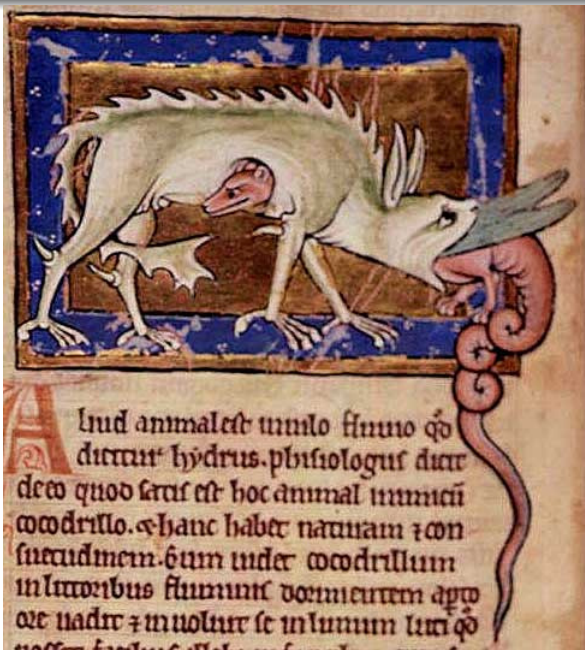 Aliud animal est in nilo fluuio qđ
dicitur hẏdrus. phisiologus dicit
de eo quod satis est hoc animal inimicū
cocodrillo. & hanc habet naturam ⁊ con
suetudinem. Cum uidet cocodrillum
in littoribus fluminis dormientem apto
ore uadit ⁊ inuoluit se in limum luti qđ